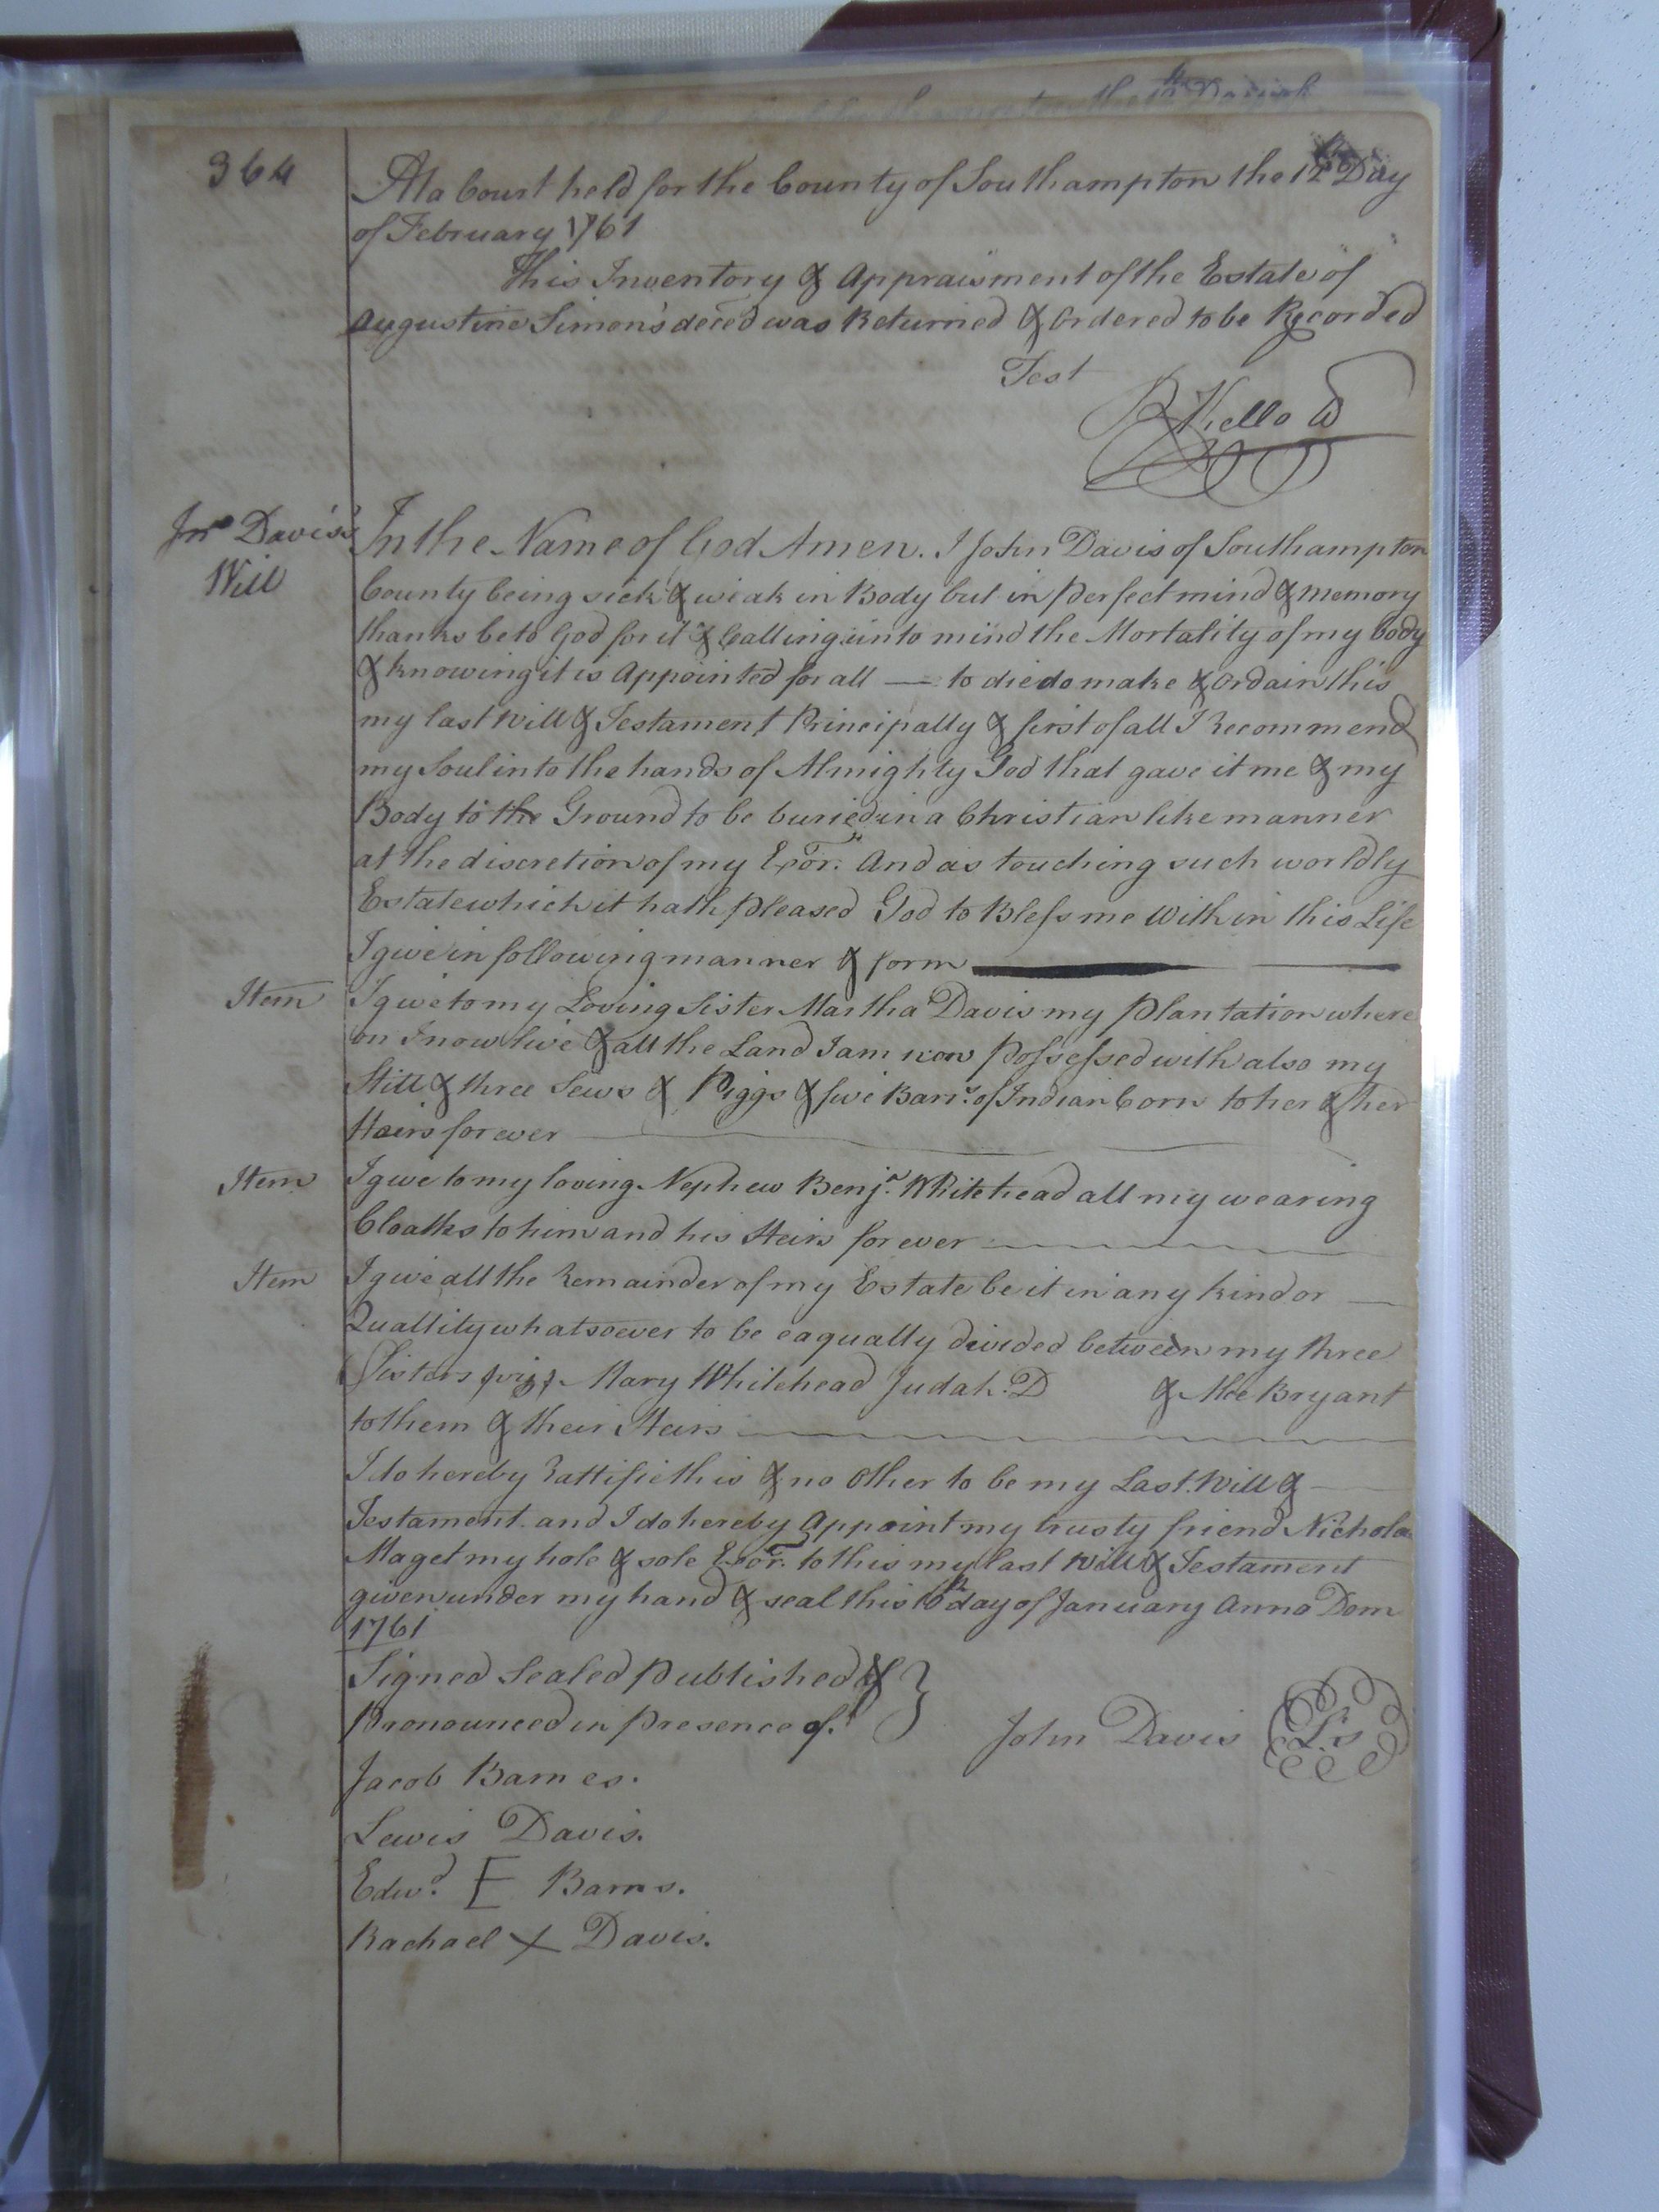 364
At a Court held for the County of Southampton the 12th Day
of February 1761
This Inventory & Appraisment of the Estate of
Augustine Simon's deced was Returned & Ordered to be Recorded
Test
R Kello
Jno Davis's
Will
In the Name of God Amen. I John Davis of Southampton
County being sick & weak in Body but in perfect mind & memory
thanks be to God for it & Calling unto mind the Mortality of my body
& knowing it is Appointed for all — to die do make & ordain this
my last Will & Testament Principally & first of all I Recommend
my Soul into the hands of Almighty God that gave it me & my
Body to the Ground to be buried in a Christian like manner
at the discretion of my Exor. And as touching such worldly
Estate which it hath pleased God to Bless me With in this Life
I give in following manner & form
Item I give to my Loving Sister Martha Davis my Plantation where
on I now live & all the Land I am now possessed with also my
Still & three Sews & Piggs & five Barrs. of Indian Corn to her & her
Heirs forever
Item I give to my loving Nephew Benja. Whitehead all my wearing
Cloaths to him and his Heirs for ever
Item I give all the Remainder of my Estate be it in any kind or
Quallity whatsoever to be eaqually divided between my three
Sistors (viz) Mary Whitehead Judah. D & Bryant
to them & their Heirs
I do hereby Rattifie this & no Other to be my Last Will &
Testament. and I do hereby Appoint my trusty friend Nicholas
Maget my hole & sole Exor. to this my last Will & Testament
given under my hand & seal this day of January Anno Dom
1761
Signed Sealed Published &
Pronounced in presence of.
John Davis Ls
Jacob Barnes.
Lewis Davis.
Edwd. E Barns.
Rachael X Davis.